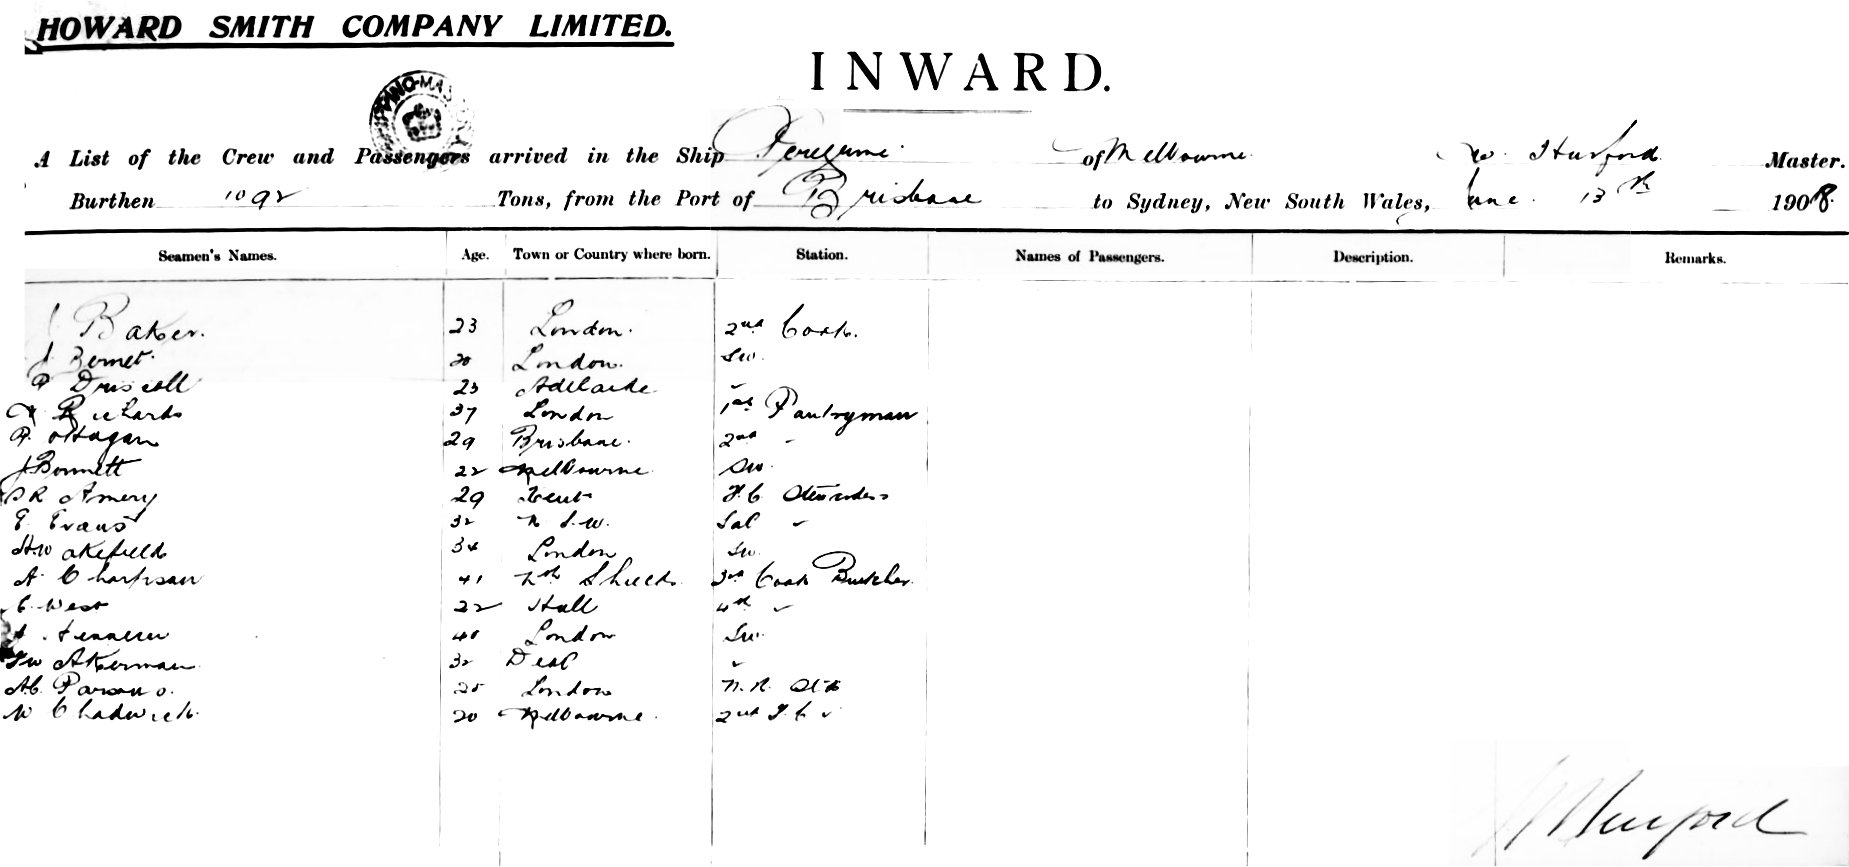 HOWARD SMITH COMPANY LIMITED.
INWARD.
A List of the Crew and Passengers arrived in the Ship Peregrine of Melbourne W. Hurford Master.
Burthen 1092 Tons, from the Port of Brisbane to Sydney, New South Wales, June 13th 1908
Seamen's Names. Age. Town or Country where born. Station. Names of Passengers. Description. Remarks.
J Baker. 23 London. 2nd Cook.
J. Bernet. 20 London.
P Driscoll 23 Adelaide "
Richards 37 London 1st Pantryman
P. O'Hagan 29 Brisbane. 2nd "
J Bonnett 22 Melbourne
Amery 29 Kent F.C. Stewardess
E. Evans 32 N.S.W. Sal "
H Wakefield 34 London
A. Charlson 41 Nth Shields. 3rd Cook Butcher
C. West 22 Hull 4th "
40 London
Akerman 32 Deal "
Parsons. London
W Chadwick. 20 Melbourne. 2nd
Hurford